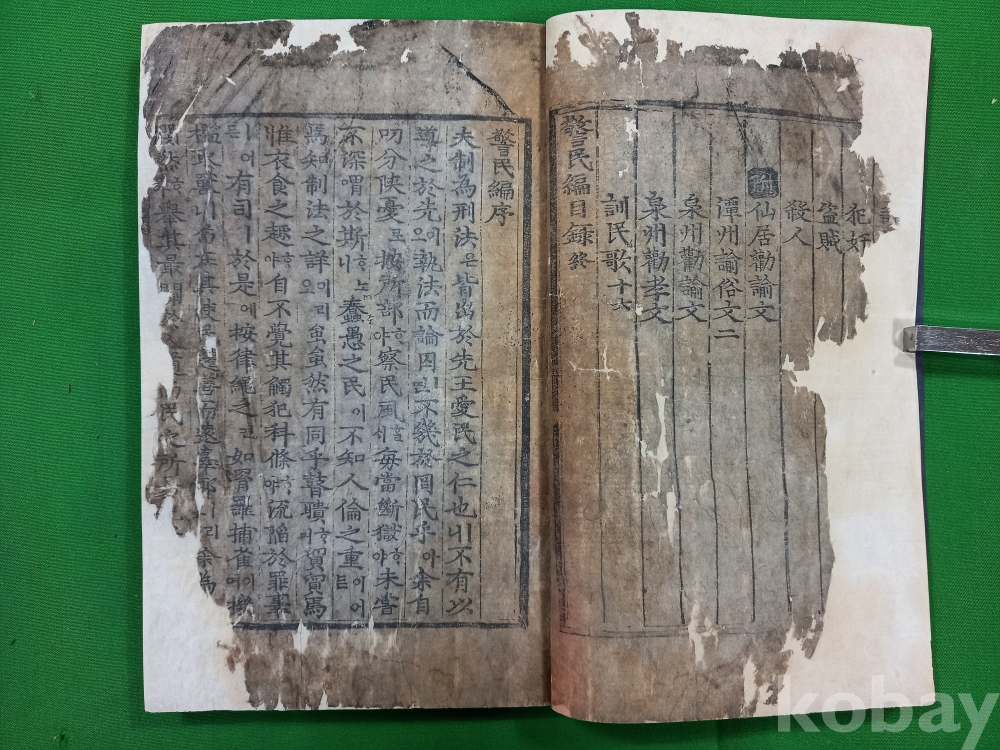 犯奸
盜賊
殺人
附 仙居勸諭文
潭州諭俗文二
泉州勸諭文
泉州勸孝文
訓民歌十六
警民編目録終
警民編序
夫制為刑法은皆出於先王愛民之仁也ㅣ니不有以
導之於先이執法而論囚ㅣ면不幾於罔民乎아余自
叨分陜憂로按所部ᄒᆞ야察民風ᄒᆞᆯ시每當斷獄ᄒᆞ야未嘗
不深喟於斯ᄒᆞ노니蠢愚之民이不知人倫之重이어든
焉知制法之詳이리오蚩蚩然有同乎瞽聵ᄒᆞ야貿貿焉
惟衣食之趍ᄒᆞ야自不覺其觸犯科條ᄒᆞ야流陷於罪辜
ㅣ어든有司ㅣ於是에按律繩之ᄒᆞ면如羅捕雀이며機
檻取獸ㅣ니善而遠辜耶ㅣ리余為
擧其最關民之所